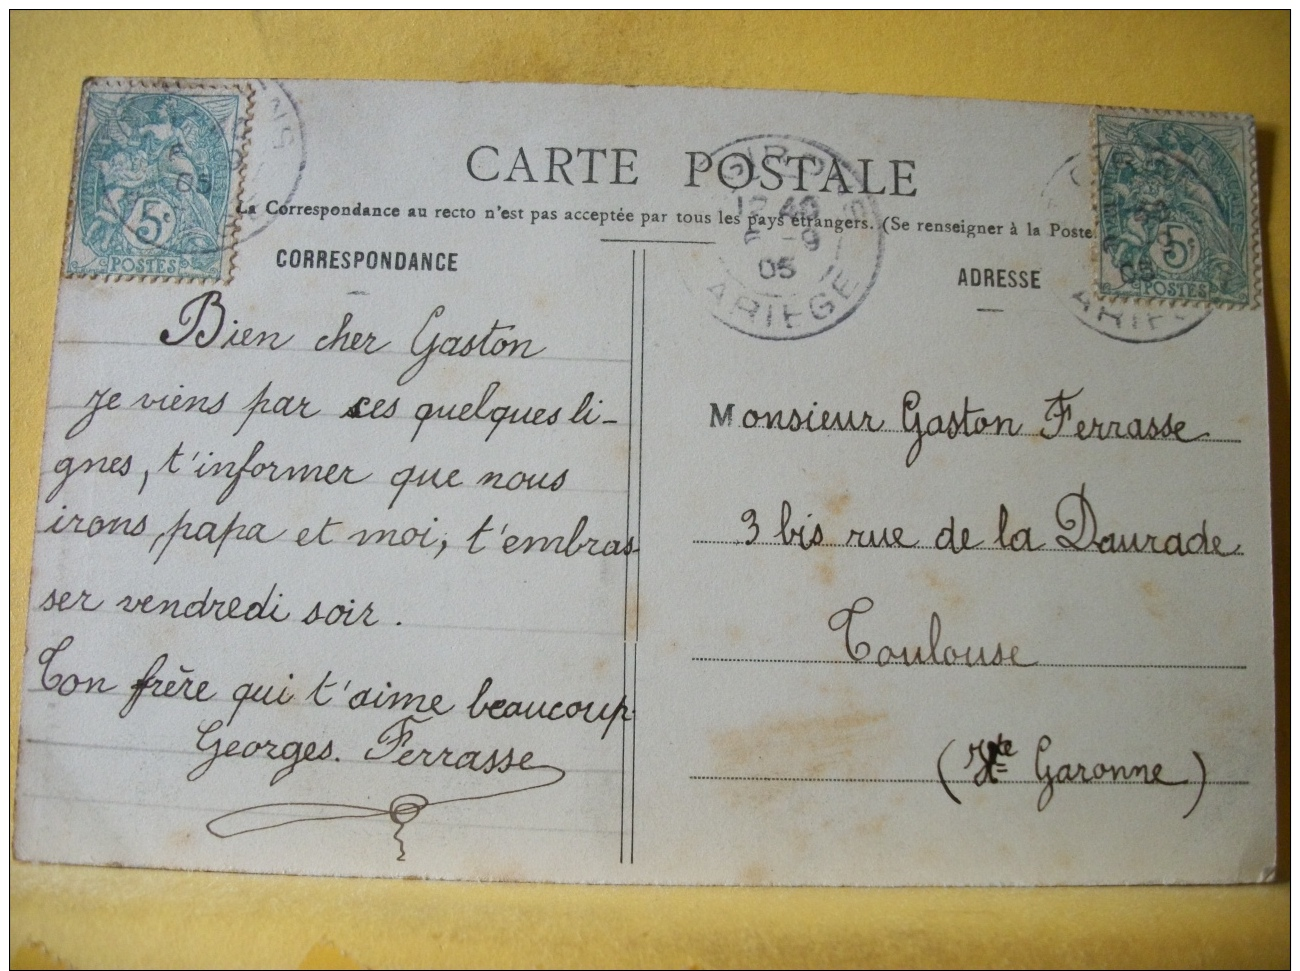 CARTE POSTALE
La Correspondance au recto n'est pas acceptée par tous les pays étrangers. (Se renseigner à la Poste
CORRESPONDANCE
Bien cher Gaston
Je viens par ces quelques li-
gnes, t'informer que nous
irons, papa et moi, t'embras-
ser vendredi soir.
Ton frère qui t'aime beaucoup.
Georges. Ferrasse
ADRESSE
Monsieur Gaston Ferrasse
3 bis rue de la Daurade
Toulouse
(Hte Garonne)
5c
POSTES
05
12 40
-9
05
ARIEGE
5c
POSTES
05